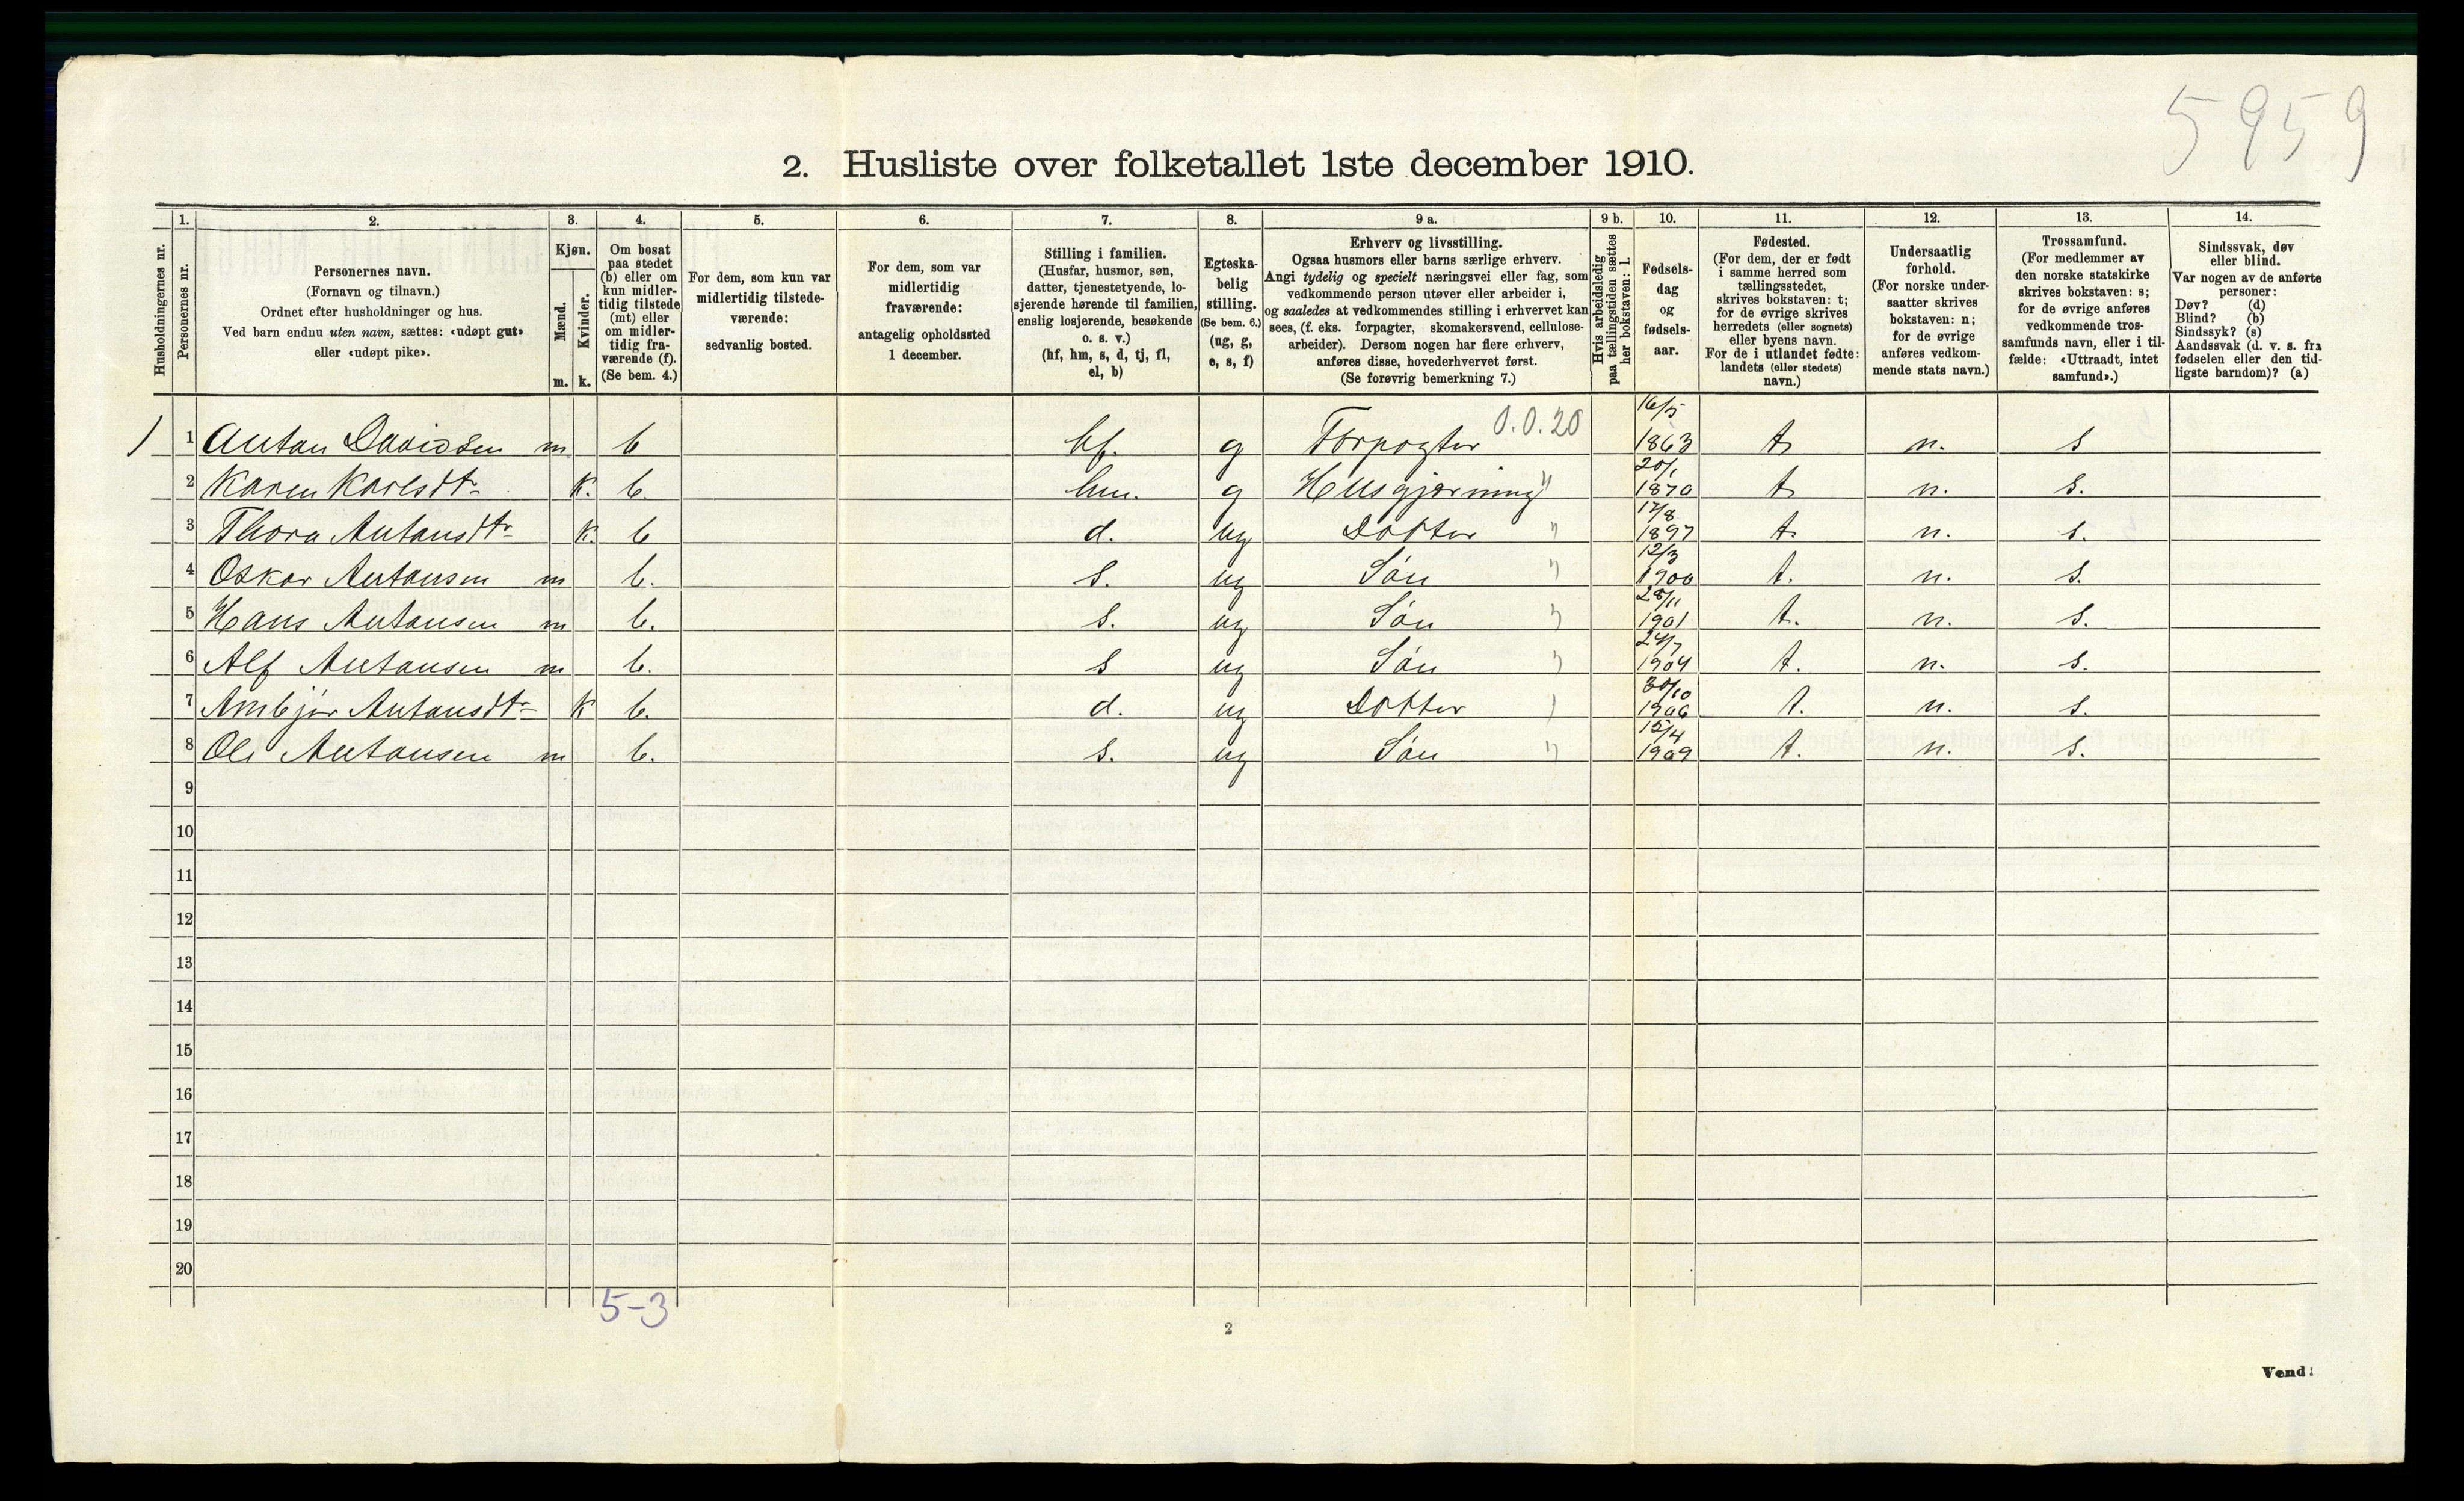 5959
2. Husliste over folketallet 1ste december 1910.
Husholdningernes nr.
1.
Personernes nr.
2.
Personernes navn.
(Fornavn og tilnavn.)
Ordnet efter husholdninger og hus.
Ved barn endnu uten navn, sættes: «udøpt gut»
eller «udøpt pike».
3.
Kjøn.
Mænd.
m.
Kvinder.
k.
4.
Om bosat
paa stedet
(b) eller om
kun midler-
tidig tilstede
(mt) eller
om midler-
tidig fra-
værende (f).
(Se bem. 4.)
5.
For dem, som kun var
midlertidig tilstede-
værende:
sedvanlig bosted.
6.
For dem, som var
midlertidig
fraværende:
antagelig opholdssted
1 december.
7.
Stilling i familien.
(Husfar, husmor, søn,
datter, tjenestetyende, lo-
sjerende hørende til familien,
enslig losjerende, besøkende
o. s. v.)
(hf, hm, s, d, tj, fl,
el, b)
8.
Egteska-
belig
stilling.
(Se bem. 6.)
(ug, g,
e, s, f)
9 a.
Erhverv og livsstilling.
Ogsaa husmors eller barns særlige erhverv.
Angi tydelig og specielt næringsvei eller fag, som
vedkommende person utøver eller arbeider i,
og saaledes at vedkommendes stilling i erhvervet kan
sees, (f. eks. forpagter, skomakersvend, cellulose-
arbeider). Dersom nogen har flere erhverv,
anføres disse, hovederhvervet først.
(Se forøvrig bemerkning 7.)
9 b.
Hvis arbeidsledig
paa tællingstiden sættes
her bokstaven: l.
10.
Fødsels-
dag
og
fødsels-
aar.
11.
Fødested.
(For dem, der er født
i samme herred som
tællingsstedet,
skrives bokstaven: t;
for de øvrige skrives
herredets (eller sognets)
eller byens navn.
For de i utlandet fødte:
landets (eller stedets)
navn.)
12.
Undersaatlig
forhold.
(For norske under-
saatter skrives
bokstaven: n;
for de øvrige
anføres vedkom-
mende stats navn.)
13.
Trossamfund.
(For medlemmer av
den norske statskirke
skrives bokstaven: s;
for de øvrige anføres
vedkommende tros-
samfunds navn, eller i til-
fælde: «Uttraadt, intet
samfund».)
14.
Sindssvak, døv
eller blind.
Var nogen av de anførte
personer:
Døv? (d)
Blind? (b)
Sindssyk? (s)
Aandssvak (d. v. s. fra
fødselen eller den tid-
ligste barndom)? (a)
1 1 Anton Davidsen m b hf. g Forpagter 0.0.20 16/5 1863 t n. s
2 Karen Karlsdtr k. b. hm. g Husgjerning " 20/1 1870 t n. s.
3 Thora Antonsdtr k. b d. ug Dotter " 17/8 1897 t. n. s.
4 Oskar Antonsen m b. s. ug Søn " 12/3 1900 t. n. s.
5 Hans Antonsen m b. s. ug Søn " 28/11 1901 t. n. s.
6 Alf Antonsen m b. s ug Søn " 24/7 1904 t. n. s.
7 Ambjør Antonsdtr k b. d. ug Dotter " 30/10 1906 t. n. s.
8 Ole Antonsen m b. s. ug Søn " 15/4 1909 t. n. s.
9
10
11
12
13
14
15
16
17
18
19
20
5-3
2
Vend!